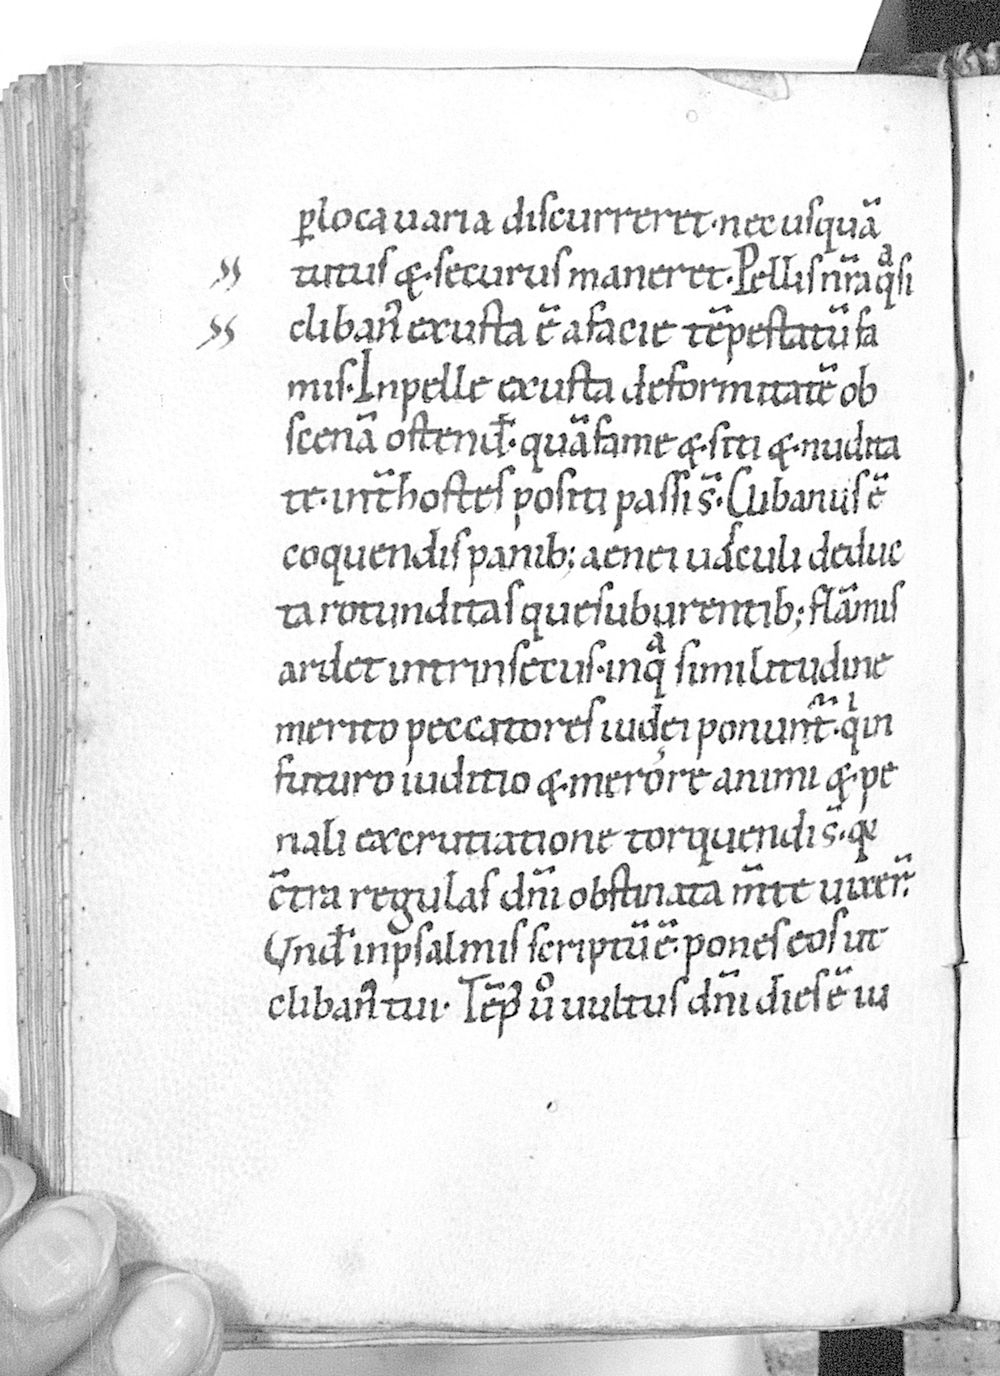 ꝑ loca uaria discurreret· nec usquã
tutus &· securus maneret· Pellis nr̃a qᵃsi
clibanꝰ exusta ẽ a facie tẽpestatũ fa
mis· In pelle exusta deformitatẽ ob
scenã ostend̃· quã fame &· siti &· nudita
te· int̃ hostes positi passi s̃· Clibanus ẽ
coquendis panib; aenei uasculi deduc
ta rotunditas que sub urentib; flãmis
ardet intrinsecus· in qᵃ similitudine
merito peccatores iudęi ponunt̃· qⁱ in
futuro iuditio &· merore animi &· pe
nali excrutiatione torquendi s̃· qⁱ
c̃tra regulas dñi obstinata m̃te uixer̃·
Und̃ in psalmis scriptũ ẽ· pones eos ut
clibanꝰ tui· Tẽpꝰ uº uultus dñi dies ẽ iu